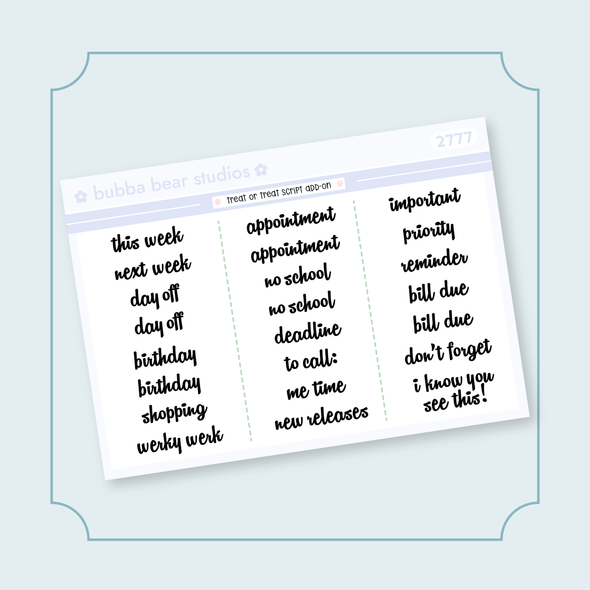 bubba bear studios
2777
treat or treat script add-on
this week
next week
day off
day off
birthday
birthday
shopping
werky werk
appointment
appointment
no school
no school
deadline
to call:
me time
new releases
important
priority
reminder
bill due
bill due
don't forget
i know you
see this!